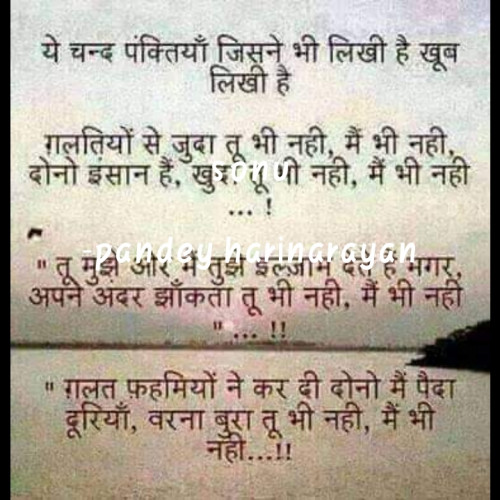 ये चन्द पंक्तियाँ जिसने भी लिखी है खूब
लिखी है
ग़लतियों से जुदा तू भी नही, मैं भी नही,
दोनो इंसान हैं, खुदा तू भी नही, मैं भी नही
... !
sonu
-pandey harinarayan
" तू मुझे और मैं तुझे इल्ज़ाम देते हैं मगर,
अपने अंदर झाँकता तू भी नही, मैं भी नही
" ... !!
" ग़लत फ़हमियों ने कर दी दोनो मैं पैदा
दूरियाँ, वरना बुरा तू भी नही, मैं भी
नही...!!